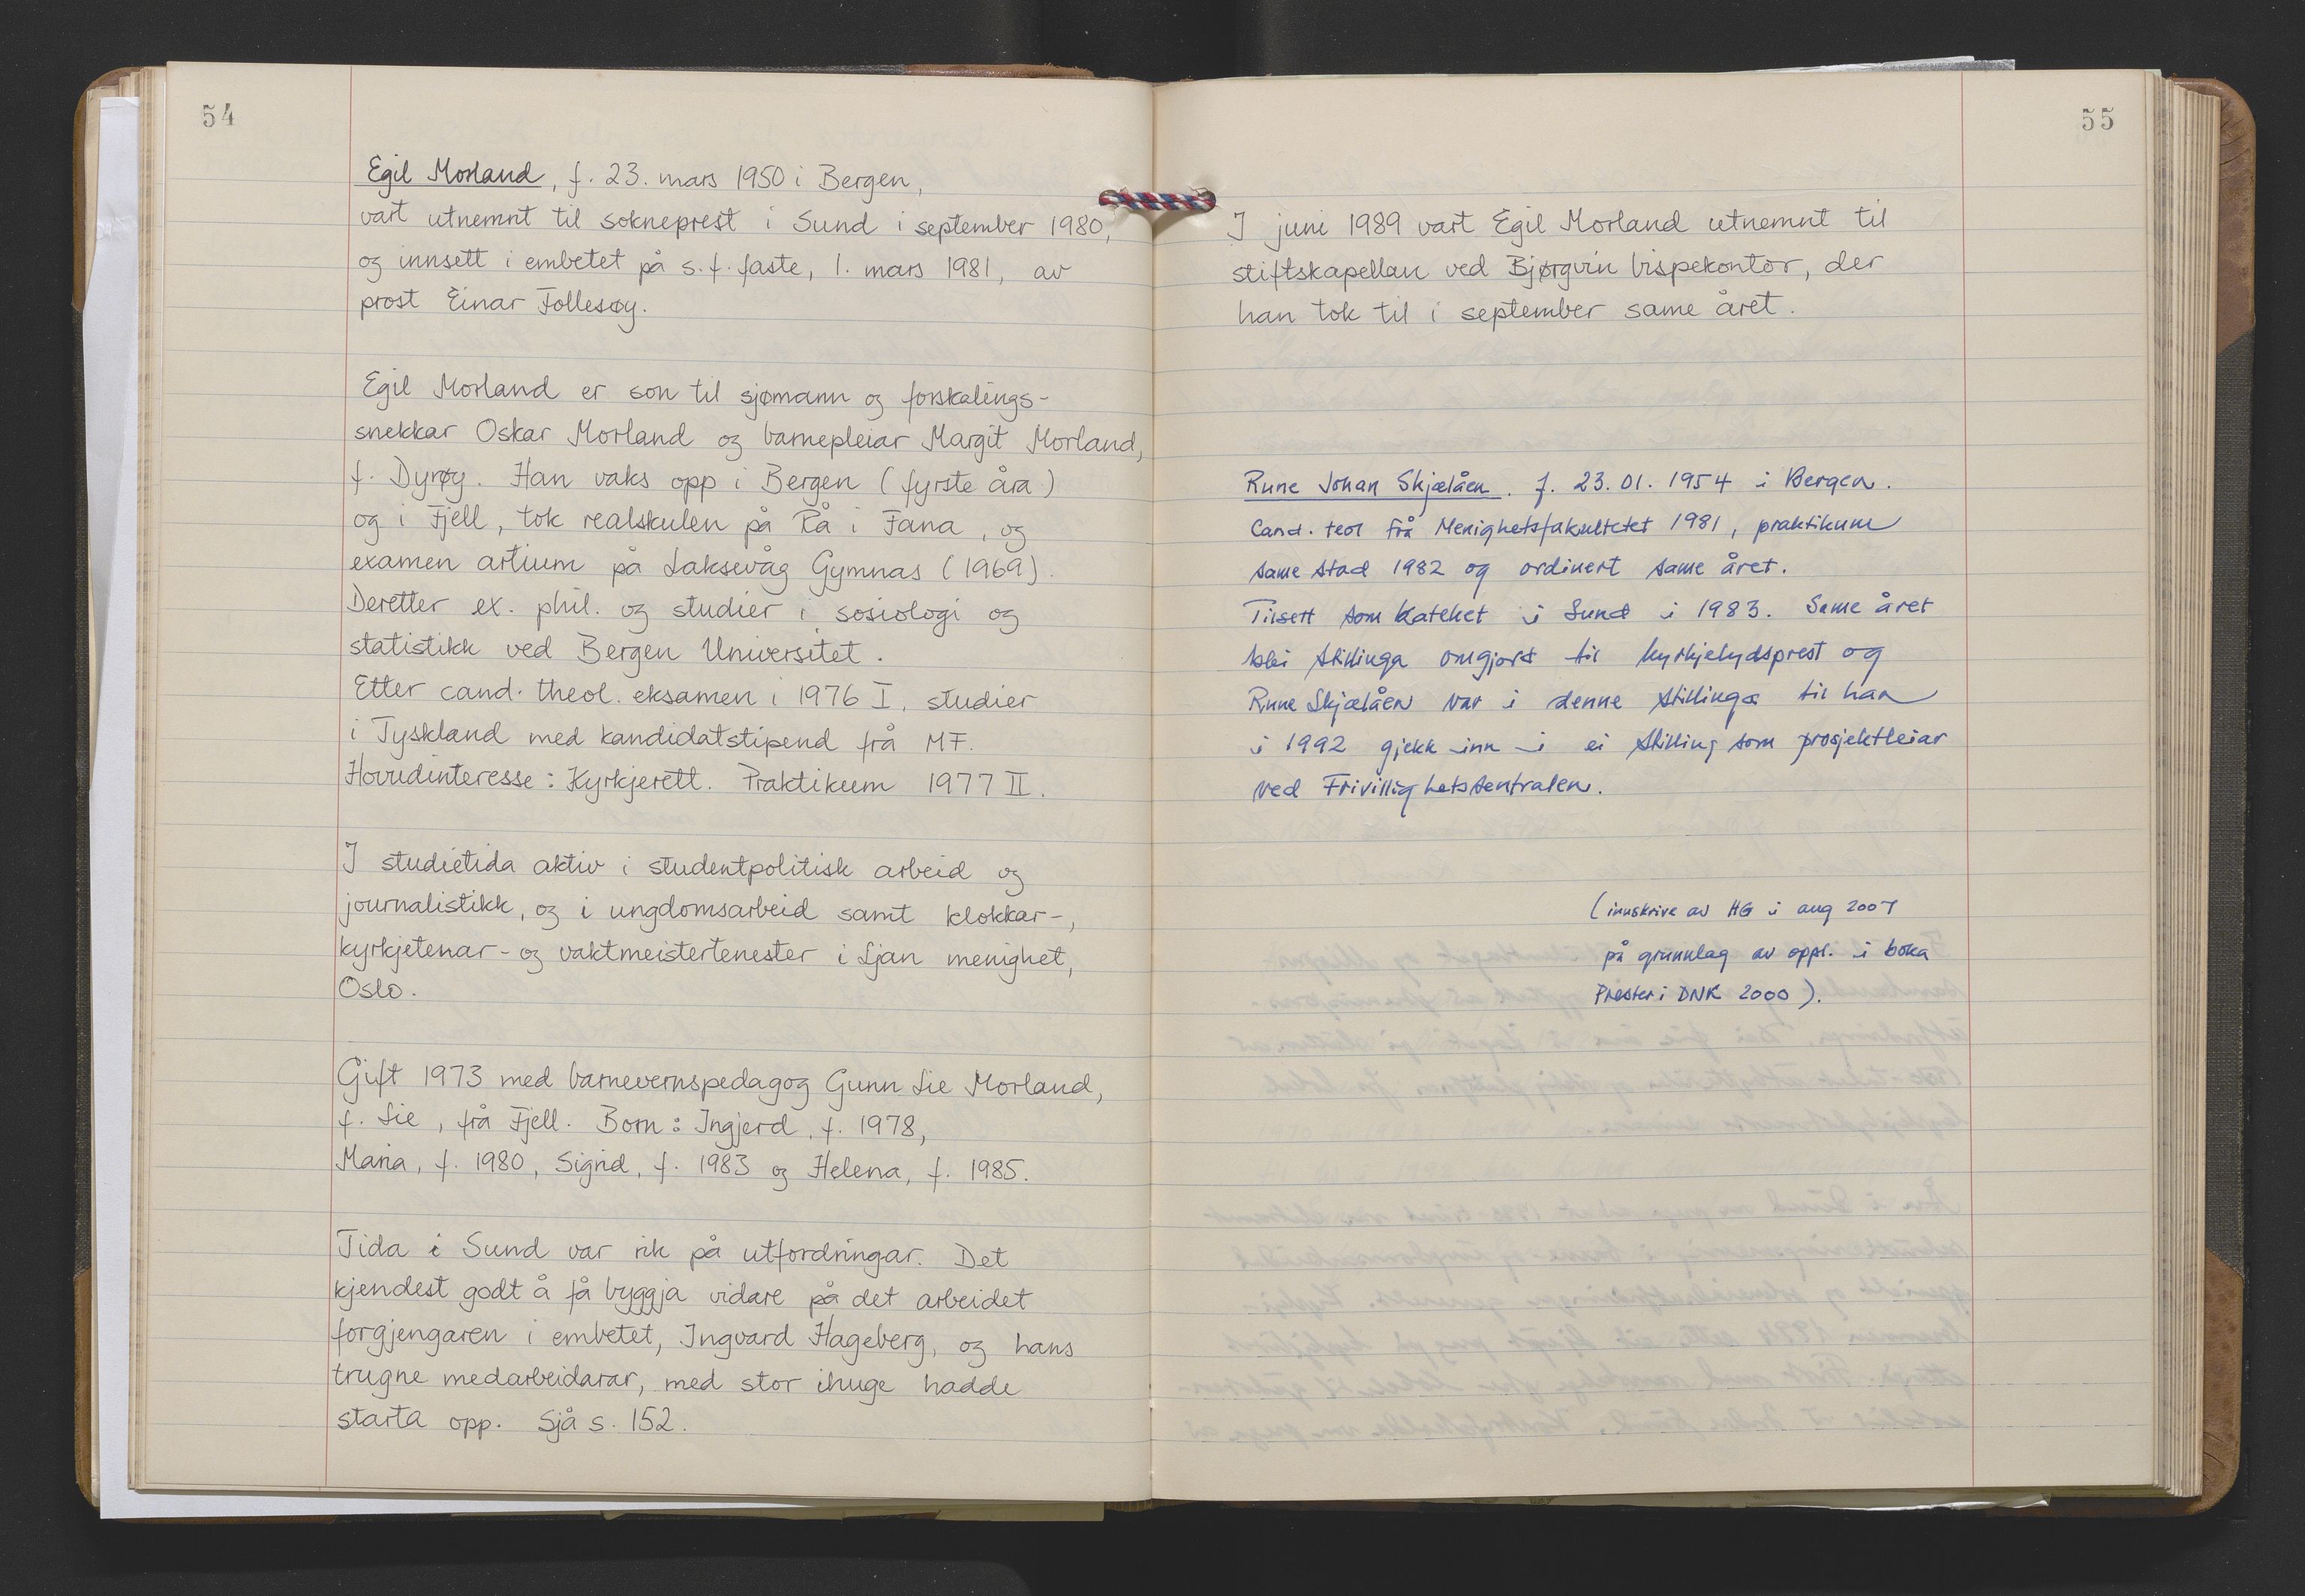 54
Egil Morland, f. 23. mars 1950 i Bergen,
vart utnemnt til sokneprest i Sund i september 1980,
og innsett i embetet på s.f. faste, 1. mars 1981, av
prost Einar Follesøy.
Egil Morland er son til sjømann og forskalings-
snekkar Oskar Morland og barnepleiar Margit Morland,
f. Dyrøy. Han vaks opp i Bergen (fyrste åra)
og i Fjell, tok realskulen på Rå i Fana, og
examen artium på Laksevåg Gymnas (1969).
Deretter ex. phil. og studier i sosiologi og
statistikk ved Bergen Universitet.
Etter cand. theol. eksamen i 1976 I, studier
i Tyskland med kandidatstipend frå MF.
Hovudinteresse: Kyrkjerett. Praktikum 1977 II.
I studietida aktiv i studentpolitisk arbeid og
journalistikk, og i ungdomsarbeid samt klokkar-,
kyrkjetenar- og vaktmeistertenester i Ljan menighet,
Oslo.
Gift 1973 med barnevernspedagog Gunn Lie Morland,
f. Lie, frå Fjell. Born: Ingjerd, f. 1978,
Maria, f. 1980, Sigrid, f. 1983 og Helena, f. 1985.
Tida i Sund var rik på utfordringar. Det
kjendest godt å få byggja vidare på det arbeidet
forgjengaren i embetet, Ingvard Hageberg, og hans
trugne medarbeidarar, med stor ihuge hadde
starta opp. Sjå s. 152.
55
I juni 1989 vart Egil Morland utnemnt til
stiftskapellan ved Bjørgvin bispekontor, der
han tok til i september same året.
Rune Johan Skjælåen. f. 23.01.1954 i Bergen.
Cand. teol frå Menighetsfakultetet 1981, praktikum
same stad 1982 og ordinert same året.
Tilsett som kateket i Sund i 1983. Same året
blei stillinga omgjort til kyrkjelydsprest og
Rune Skjælåen var i denne stillinga til han
i 1992 gjekk inn i ei stilling som prosjektleiar
ved Frivillighetssentralen.
(innskrive av HG i aug 2007
på grunnlag av oppl. i boka
Prester i DNK 2000).